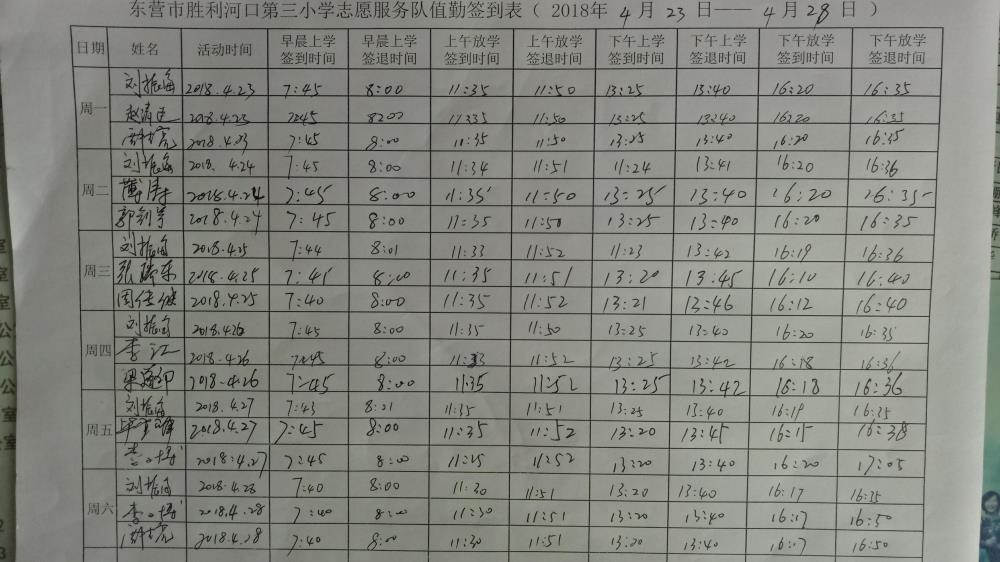 东营市胜利河口第三小学志愿服务队值勤签到表（2018年 4 月 23 日—— 4 月 28 日）
日期 姓名 活动时间 早晨上学签到时间 早晨上学签退时间 上午放学签到时间 上午放学签退时间 下午上学签到时间 下午上学签退时间 下午放学签到时间 下午放学签退时间
周一 刘振海 2018.4.23 7:45 8:00 11:35 11:50 13:25 13:40 16:20 16:35
2018.4.23 7:45 8:00 11:35 11:50 13:25 13:40 16:20 16:35
2018.4.23 7:45 8:00 11:35 11:50 13:25 13:40 16:20 16:35
周二 刘振海 2018.4.24 7:45 8:00 11:34 11:51 11:24 13:41 16:20 16:36
薄涛 2018.4.24 7:45 8:00 11:35 11:50 13:25 13:40 16:20 16:35
2018.4.24 7:45 8:00 11:35 11:50 13:25 13:40 16:20 16:35
周三 刘振海 2018.4.25 7:44 8:01 11:33 11:52 11:23 13:42 16:19 16:36
2018.4.25 7:41 8:00 11:35 11:51 13:20 13:45 16:10 16:40
2018.4.25 7:40 8:00 11:35 11:52 13:21 13:46 16:12 16:40
周四 刘振海 2018.4.26 7:45 8:00 11:35 11:50 13:25 13:40 16:20 16:35
李江 2018.4.26 7:45 8:00 11:33 11:52 13:25 13:42 16:18 16:36
2018.4.26 7:45 8:00 11:35 11:52 13:25 13:42 16:18 16:36
周五 刘振海 2018.4.27 7:43 8:01 11:35 11:51 13:25 13:40 16:19 16:35
2018.4.27 7:45 8:00 11:35 11:52 13:20 13:45 16:15 16:38
2018.4.27 7:45 8:00 11:25 11:52 13:20 13:40 16:20 17:05
周六 刘振海 2018.4.28 7:40 8:00 11:30 11:51 13:20 13:40 16:17 16:35
2018.4.28 7:40 8:00 11:30 11:51 13:20 13:40 16:17 16:50
2018.4.28 7:40 8:00 11:30 11:51 13:20 13:40 16:07 16:50